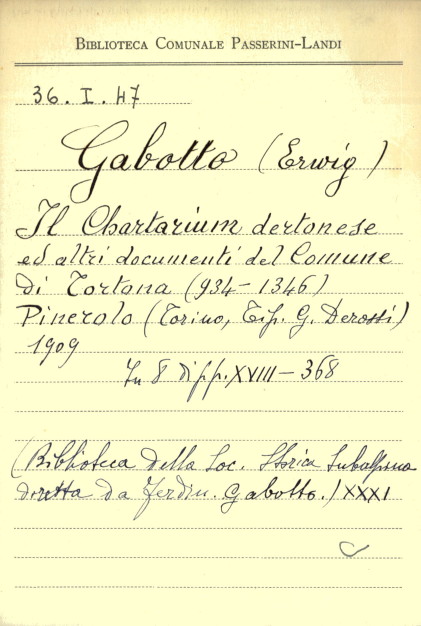 BIBLIOTECA COMUNALE PASSERINI-LANDI
36. I. 47
Gabotto (Erwig)
Il Chartarium dertonese
ed altri documenti del Comune
di Tortona (934-1346)
Pinerolo (Torino, Tip. G. Derossi)
1909
In 8 di pp. XVIII-368
(Biblioteca della Soc. Storica Subalpina
diretta da Ferdin. Gabotto.) XXXI